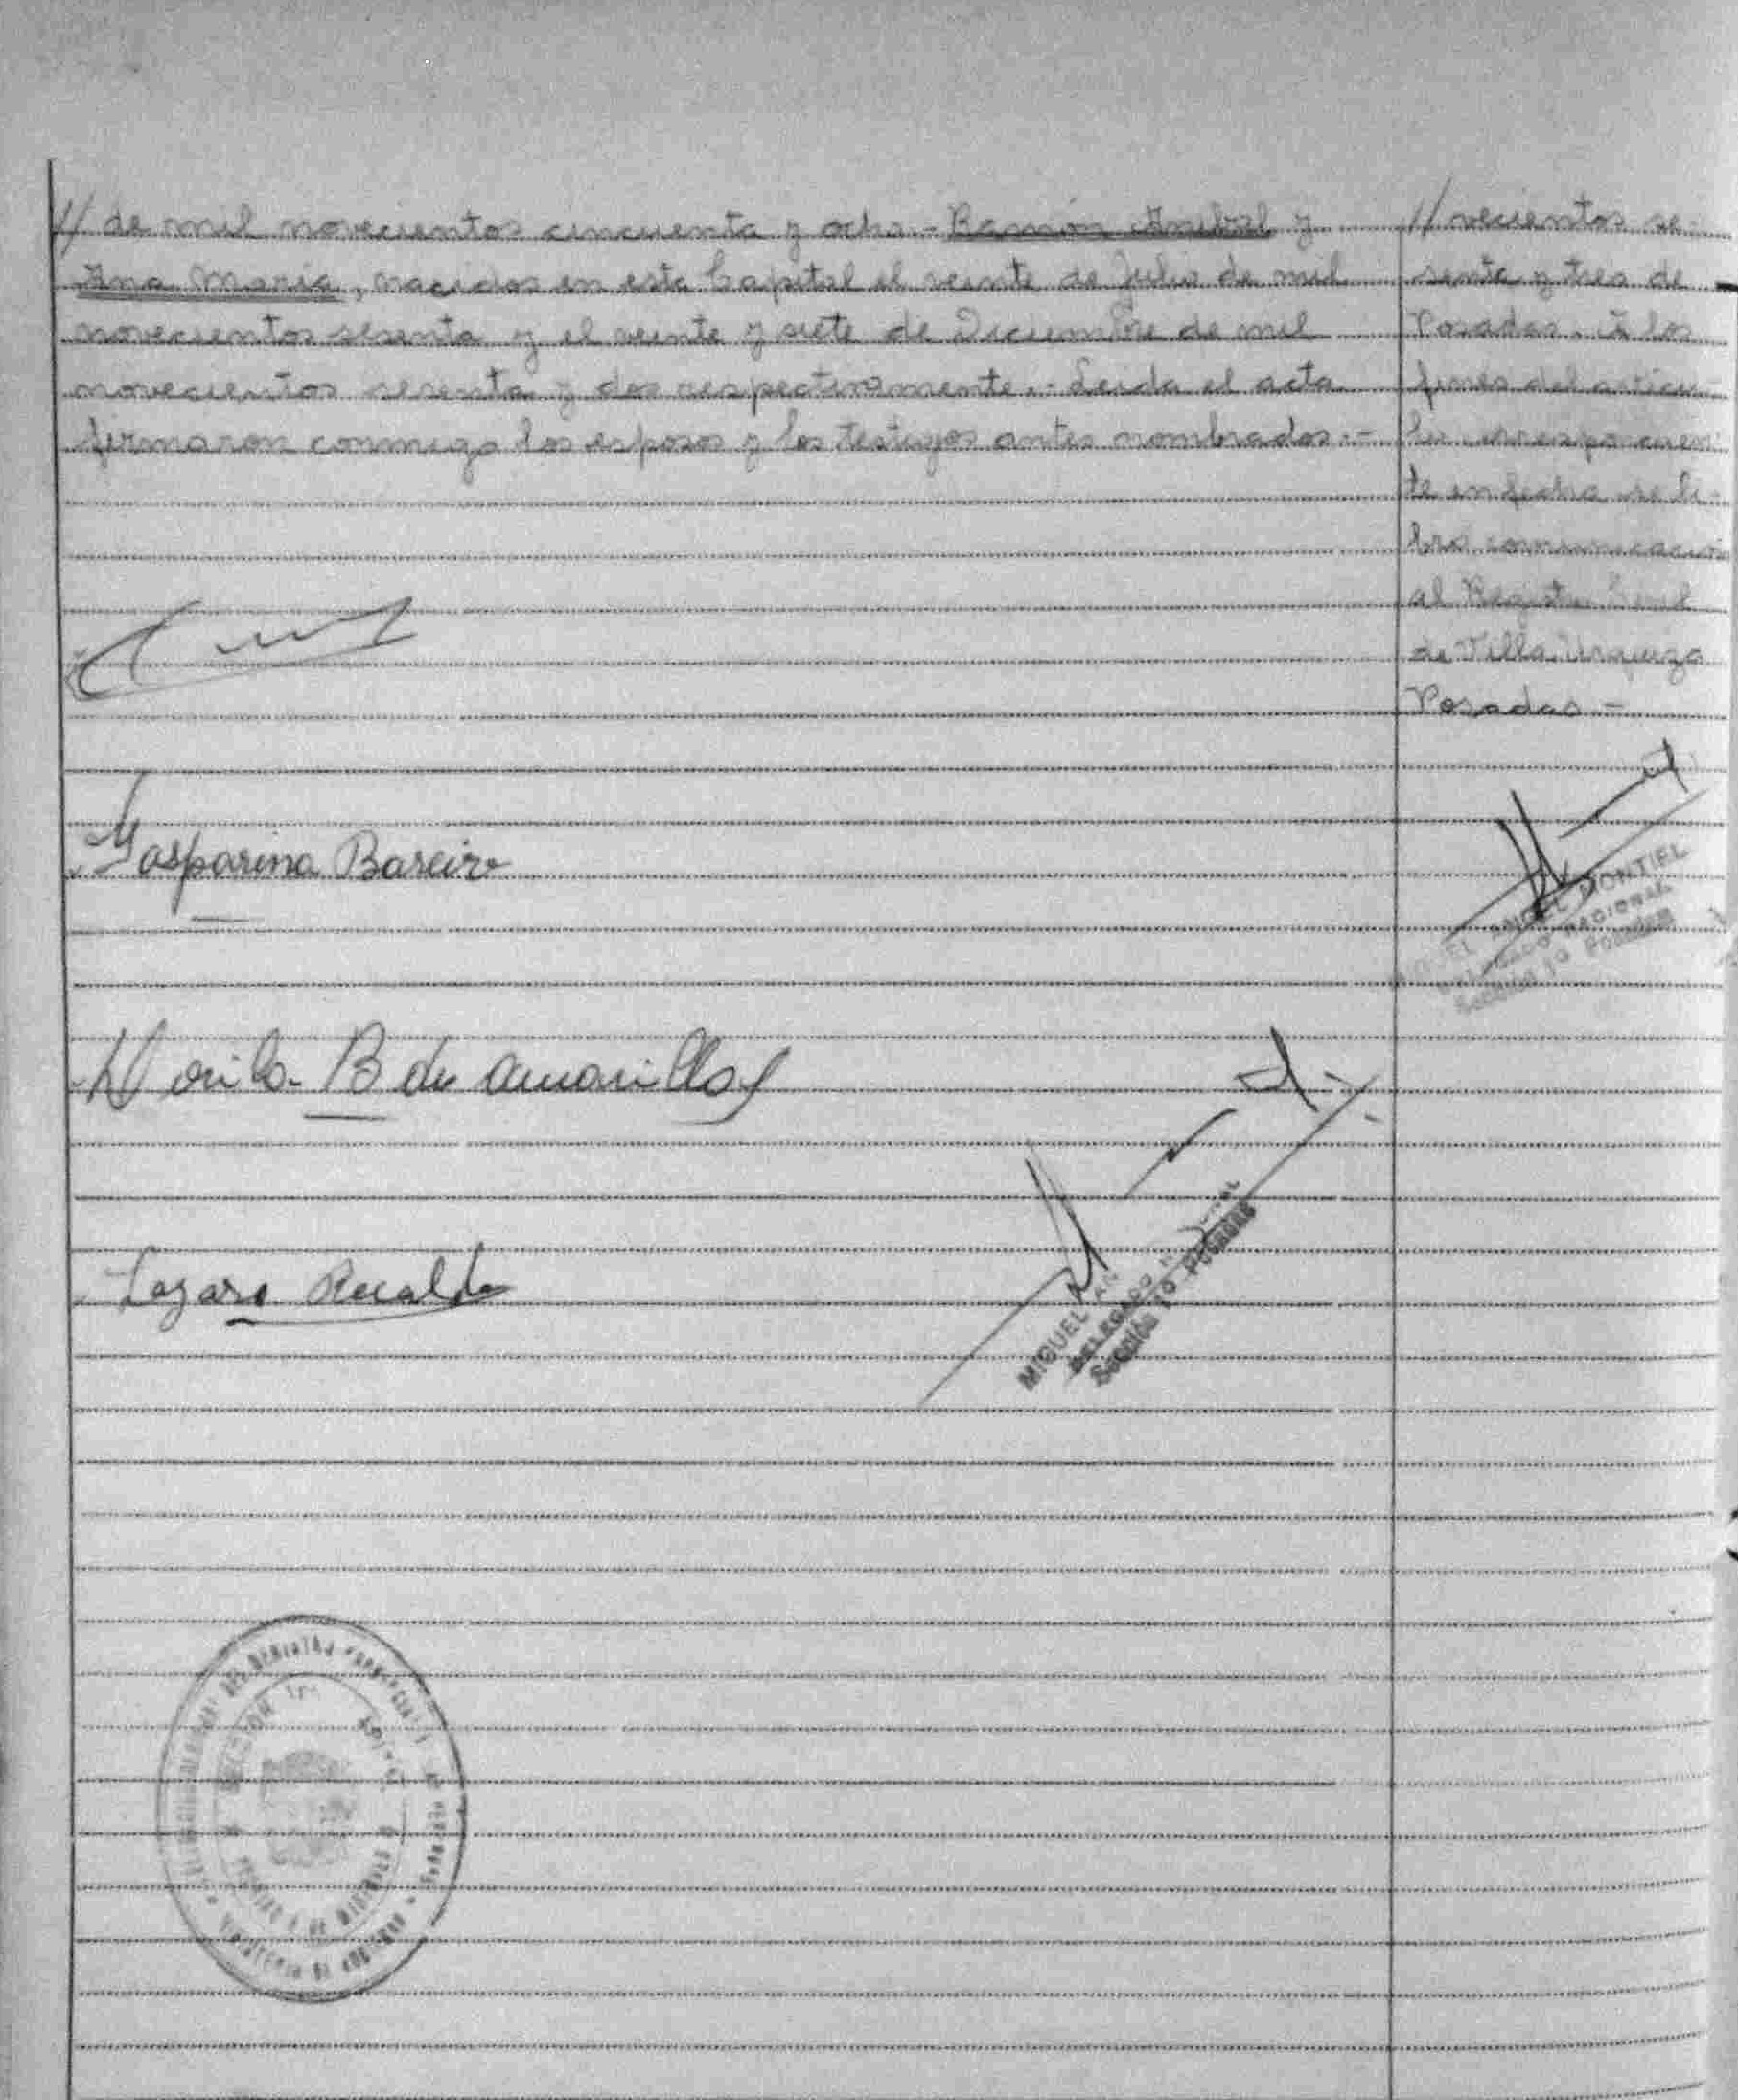 // de mil novecientos cincuenta y ocho.- Ramón Anibal y
Ana María, nacidos en esta Capital el veinte de Julio de mil
novecientos sesenta y el veinte y siete de Diciembre de mil
novecientos sesenta y dos respectivamente.- Leida el acta
firmaron conmigo los esposos y los testigos antes nombrados.-
// vecientos se-
senta y tres de
Posadas. A los
fines del articu-
lo correspondien-
te en fecha se li-
bró comunicación
al Registro Civil
de Villa Urquiza
Posadas.-
Gasparina Bareiro
ANGEL MONTIEL
DELEGADO NACIONAL
Sección 1º Posadas
B de Amarilla
Lazaro Recalde
MIGUEL AN
DELEGADO N
Sección 1º POSADAS